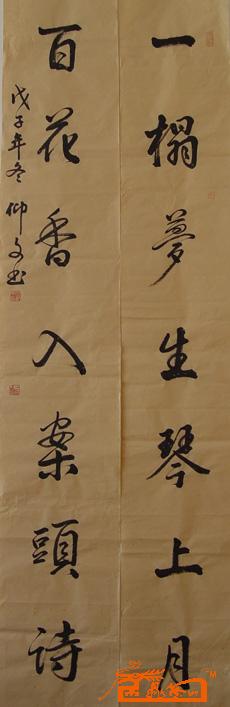 一榻夢生琴上月
百花香入案頭詩
戊子年冬 仰文书